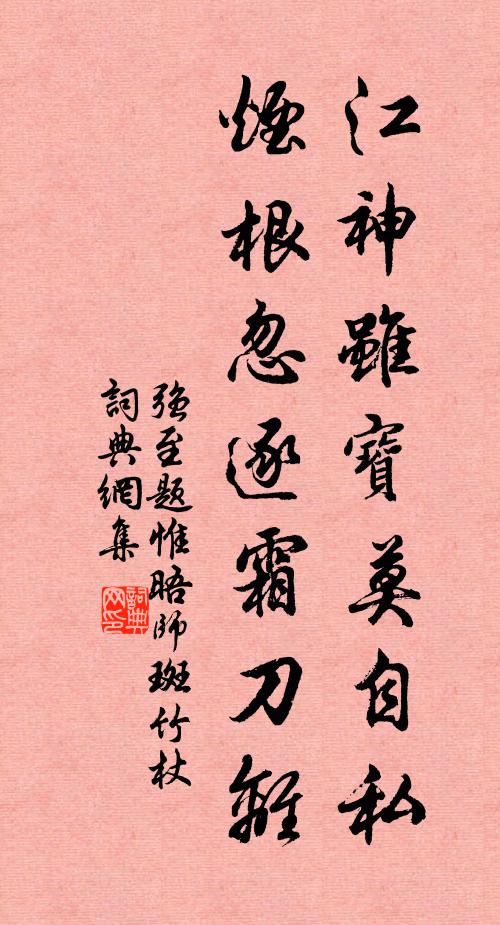 江神雖寶莫自私
煙根忽逐霜刀離
强至题惟晤師斑竹杖
詞典網集
詞典
网印